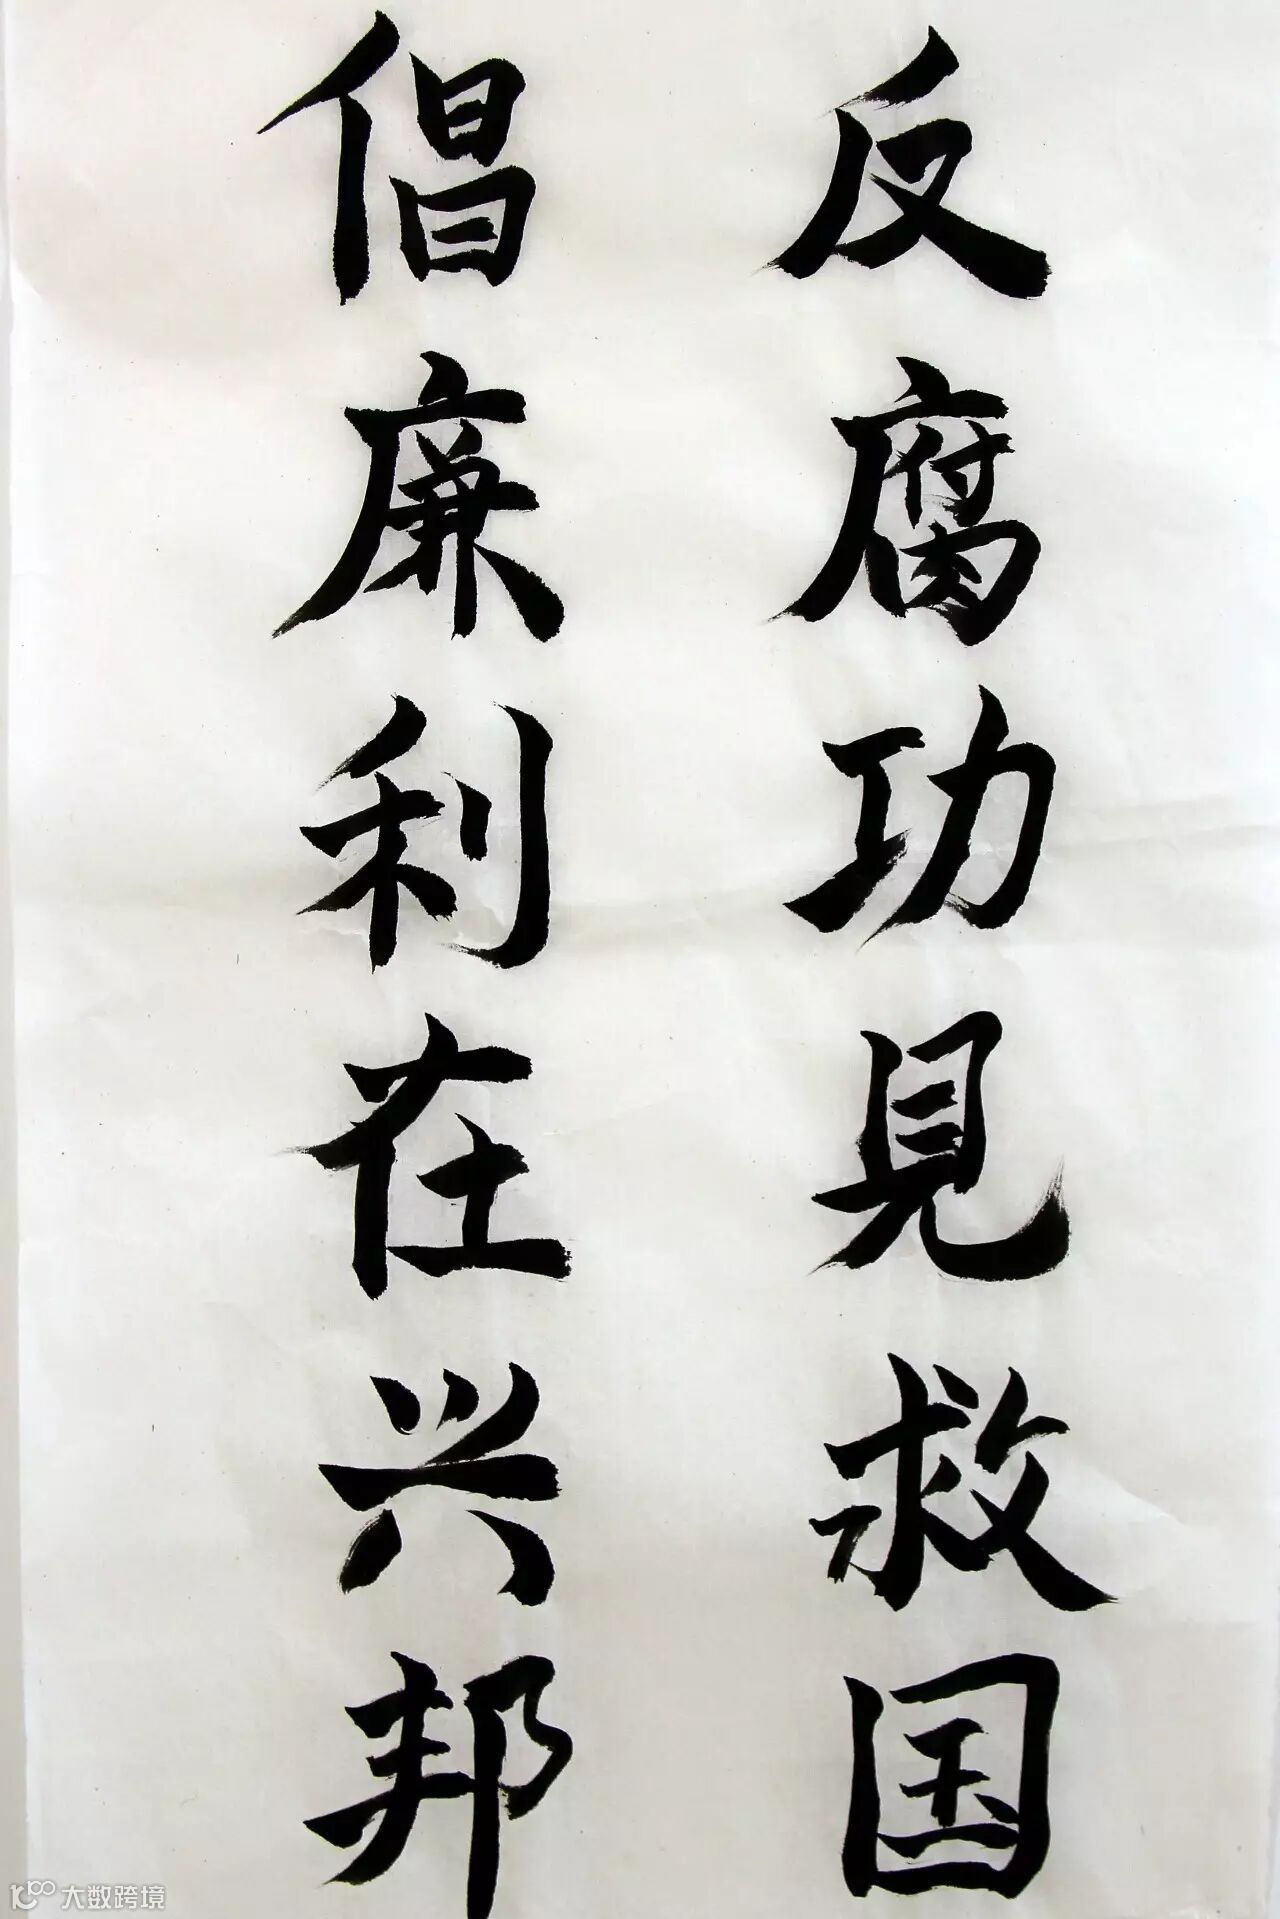 反腐功見救国
倡廉利在兴邦
大数跨境